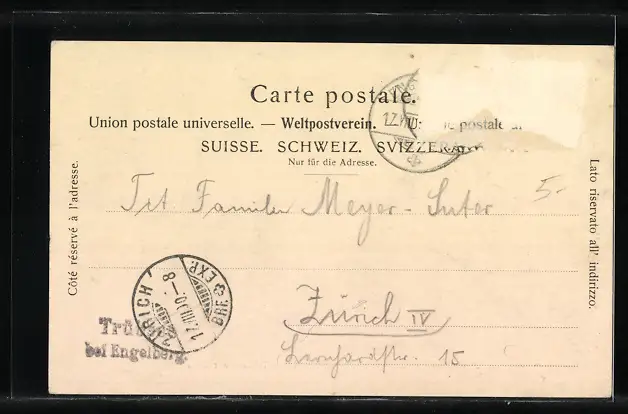 Carte postale.
Union postale universelle. — Weltpostverein. — U postale
SUISSE. SCHWEIZ. SVIZZERA
Nur für die Adresse.
Côté réservé à l'adresse.
Lato riservato all' indirizzo.
5.-
Tit Familie Meyer-Suter
Zürich IV
15
ZÜRICH
BRF. EXP.
Trü
bei Engelberg.